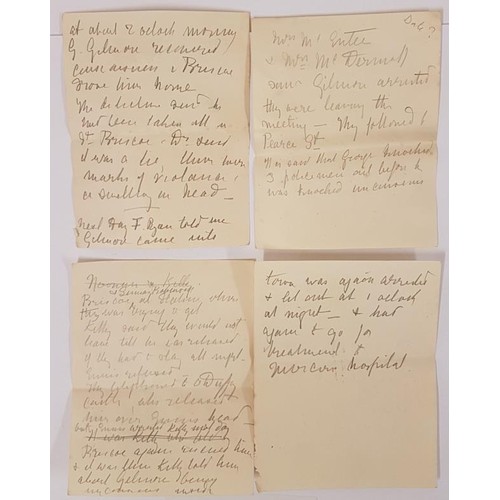 at about 2 oclock morning
G. Gilmore recovered
consciousness & Briscoe
drove him home
The detective said he
had not been taken ill in
St. Briscoe. Dr said
it was a lie, there were
marks of violence &
a swelling on head —
Next Day F. Ryan told me
Gilmore came into
Mrs Mc Entee
& Mrs Mc Dermott
saw Gilmore arrested
They were leaving the
meeting — They followed to
Pearce St
He said that George knocked
3 policemen out before he
was knocked unconscious
Briscoe at Station when
they was trying to get
Kelly said they would not
leave till he was released
if they had to stay all night.
released
They telephoned to Duffy
Castle, who released
him over head —
Kelly next day
Briscoe again rescued him
& it was then Kelly told him
about Gilmore being
unconscious inside
town was again arrested
& let out at 1 oclock
at night — & had
again to go for
treatment to
Mercers hospital